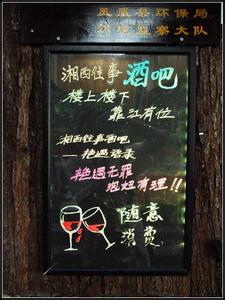 凤凰县环保局
环境监察大队
湘西往事酒吧
楼上楼下
靠江有位
湘西往事酒吧
——艳遇语录
艳遇无罪
泡妞有理!!
随意
消费